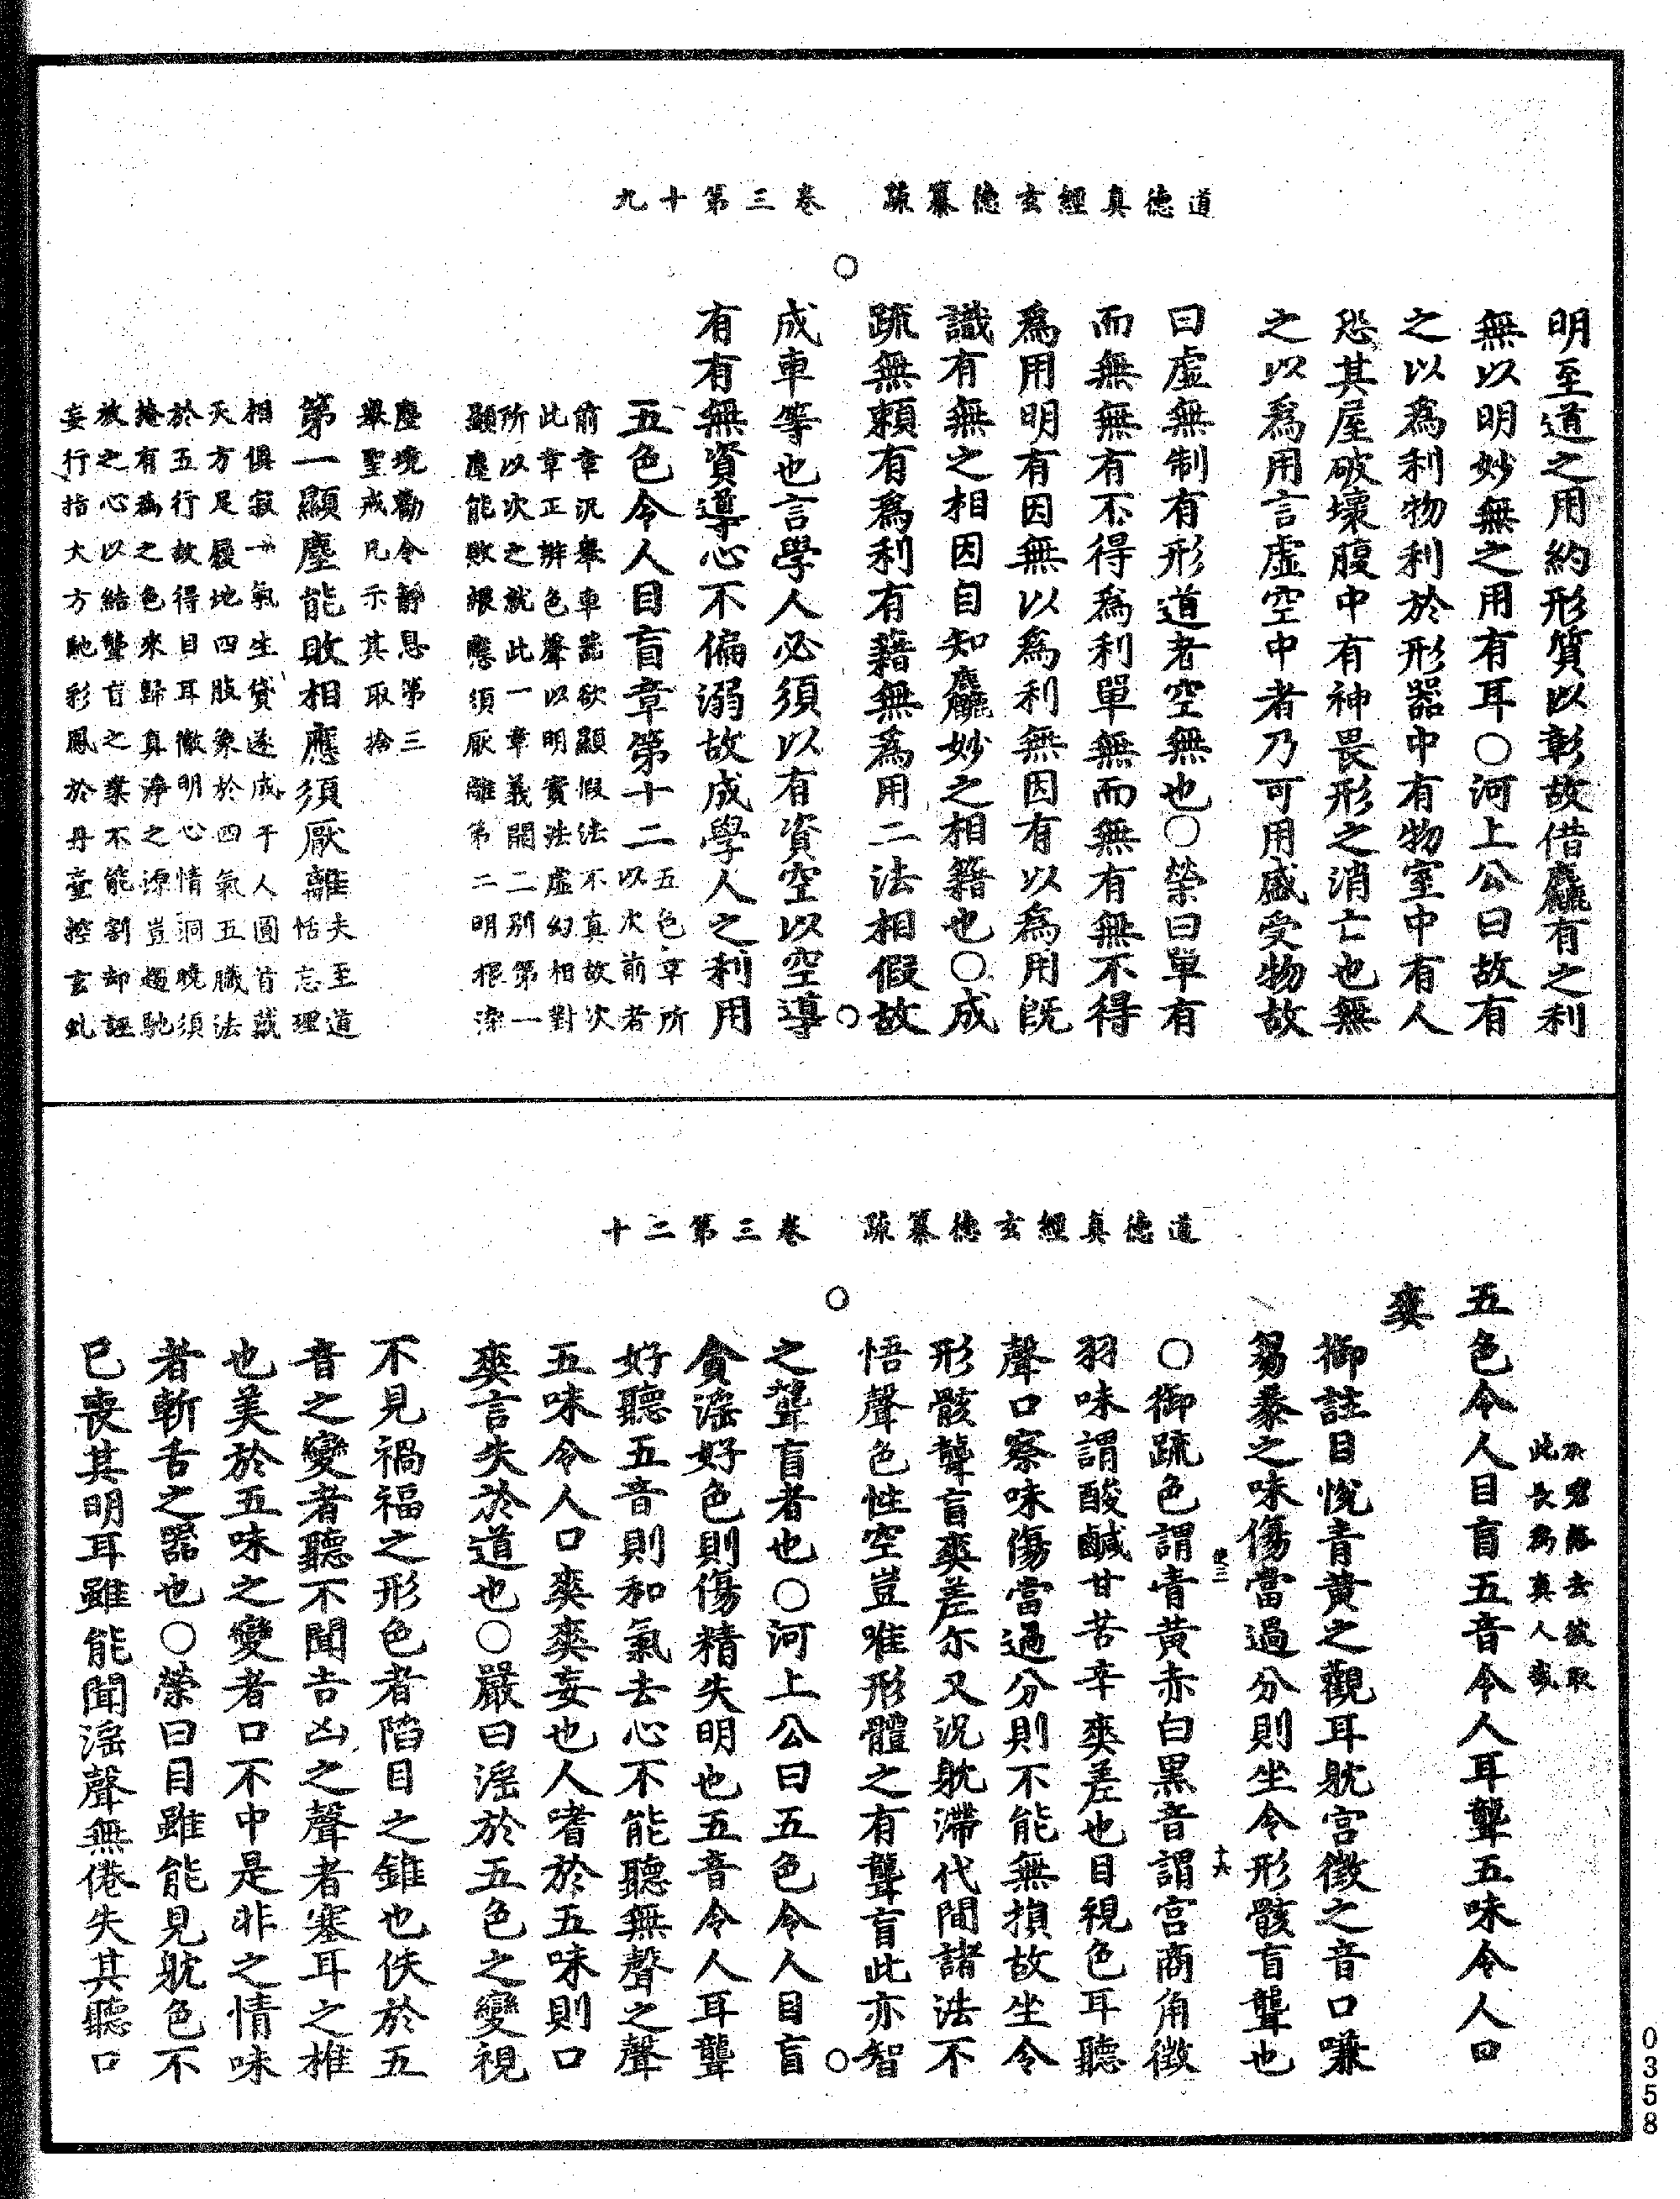 道德真經玄德纂疏　卷三第十九
明至道之用約形質以彰故借麤有之利
無以明妙無之用有耳○河上公曰故有
之以為利物利於形器中有物室中有人
恐其屋破壞腹中有神畏形之消亡也無
之以為用言虛空中者乃可用盛受物故
曰虛無制有形道者空無也○榮曰單有
而無無有不得為利單無而無有無不得
為用明有因無以為利無因有以為用既
識有無之相因自知麤妙之相籍也○成
疏無賴有為利有藉無為用二法相假故
成車等也言學人必須以有資空以空導
有有無資導心不偏溺故成學人之利用
五色令人目盲章第十二
五色章所
以次前者
前章汎舉車器欲顯假法不真故次
此章正辯色聲以明實法虛幻相對
所以次之就此一章義開二別第一
顯塵能敗根應須厭離第二明根染
塵境勸令靜息第三
舉聖戒凡示其取捨
第一顯塵能敗相應須厭離
夫至道
恬忘理
相俱寂一氣生貸遂成乎人圓首戴
天方足履地四肢象於四氣五臟法
於五行故得目耳徹明心情洞曉須
掩有為之色來歸真淨之源豈趨馳
放之心以結聾盲之業不能割却誣
妄行指大方馳彩鳳於丹臺控玄虬
道德真經玄德纂疏　卷三第二十
於碧落去彼取
此長為真人哉
五色令人目盲五音令人耳聾五味令人口
爽
御註目悅青黃之觀耳躭宮徵之音口嗛
芻豢之味傷當過分則坐令形骸盲聾也
使三
十六
○御疏色謂青黃赤白黑音謂宮商角徵
羽味謂酸鹹甘苦辛爽差也目視色耳聽
聲口察味傷當過分則不能無損故坐令
形骸聾盲爽差尔又況躭滯代間諸法不
悟聲色性空豈唯形體之有聾盲此亦智
之聾盲者也○河上公曰五色令人目盲
貪淫好色則傷精失明也五音令人耳聾
好聽五音則和氣去心不能聽無聲之聲
五味令人口爽爽妄也人嗜於五味則口
爽言失於道也○嚴曰淫於五色之變視
不見禍福之形色者陷目之錐也佚於五
音之變者聽不聞吉凶之聲者塞耳之椎
也美於五味之變者口不中是非之情味
者斬舌之器也○榮曰目雖能見躭色不
已喪其明耳雖能聞淫聲無倦失其聽口
0358